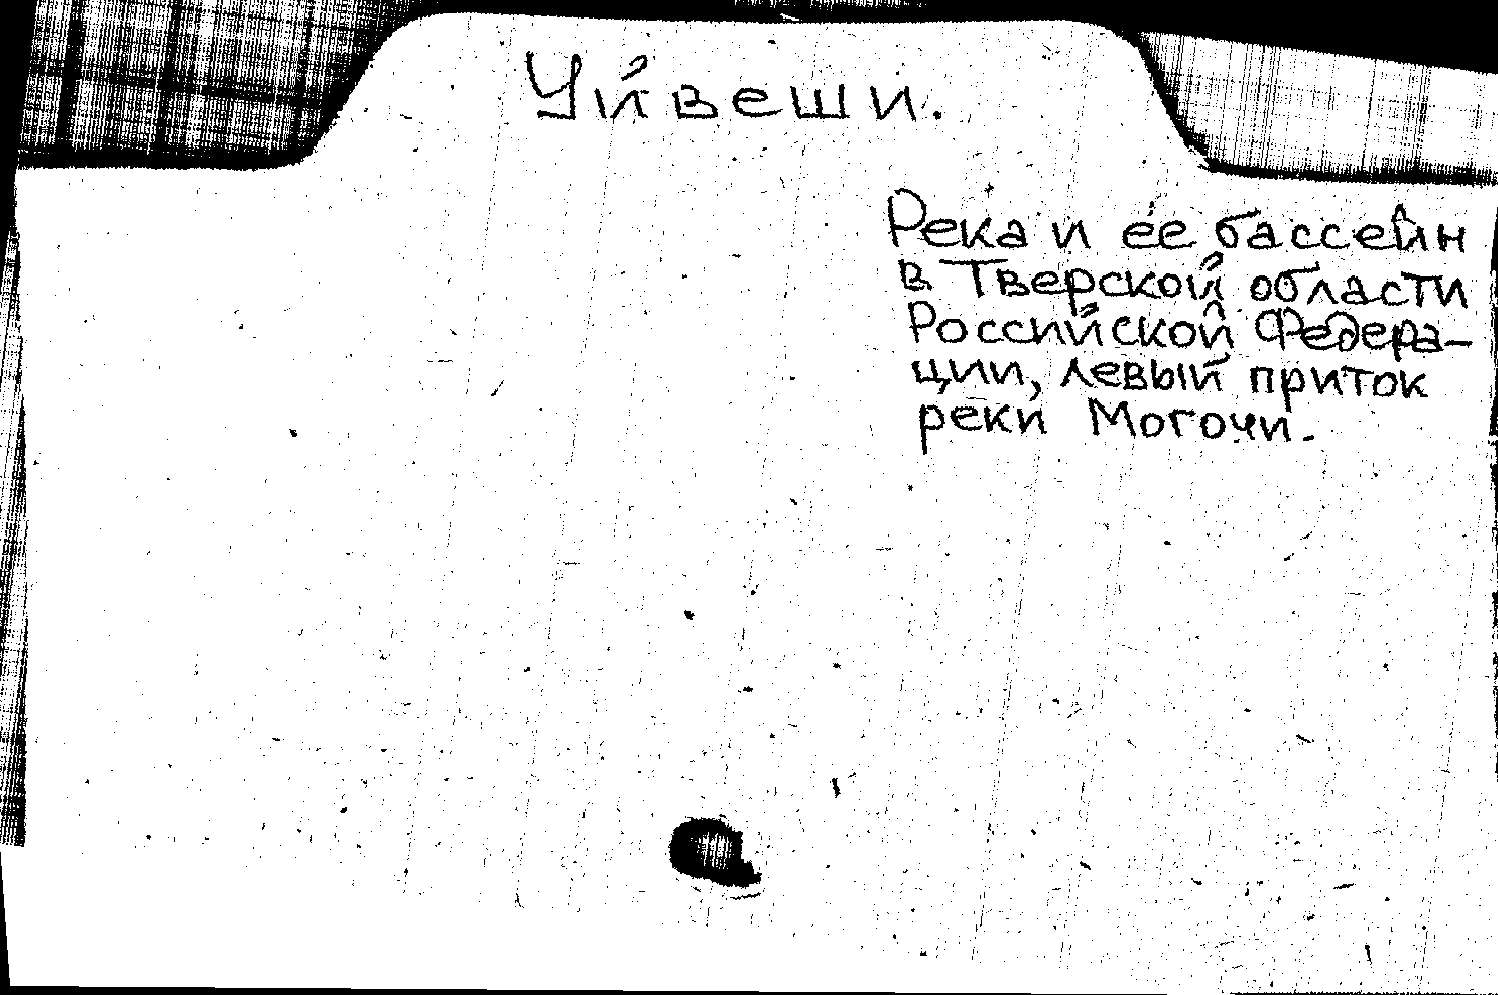 Уйвеши.
Река и её бассейн
в Тверской области
Российской Федера-
ции, левый приток
реки Могочи.